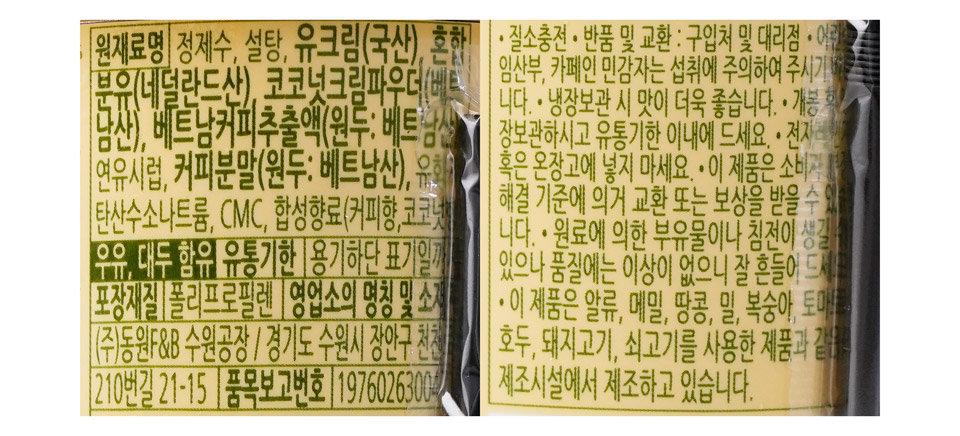 원재료명 정제수, 설탕, 유크림(국산), 혼합
분유(네덜란드산), 코코넛크림파우더(베트
남산), 베트남커피추출액(원두: 베트남산
연유시럽, 커피분말(원두: 베트남산), 유화
탄산수소나트륨, CMC, 합성향료(커피향,코코넛
우유, 대두 함유 유통기한 용기하단 표기일까
포장재질 폴리프로필렌 영업소의 명칭 및 소재
(주)동원F&B 수원공장 / 경기도 수원시 장안구 천천
210번길 21-15 품목보고번호 197602630
• 질소충전 • 반품 및 교환 : 구입처 및 대리점 • 어린
임산부, 카페인 민감자는 섭취에 주의하여 주시기
니다. • 냉장보관 시 맛이 더욱 좋습니다. • 개봉 후
장보관하시고 유통기한 이내에 드세요. • 전자레
혹은 온장고에 넣지 마세요. • 이 제품은 소비자
해결 기준에 의거 교환 또는 보상을 받을 수 있
니다. • 원료에 의한 부유물이나 침전이 생길 수
있으나 품질에는 이상이 없으니 잘 흔들어 드세
• 이 제품은 알류, 메밀, 땅콩, 밀, 복숭아, 토마토
호두, 돼지고기, 쇠고기를 사용한 제품과 같은
제조시설에서 제조하고 있습니다.